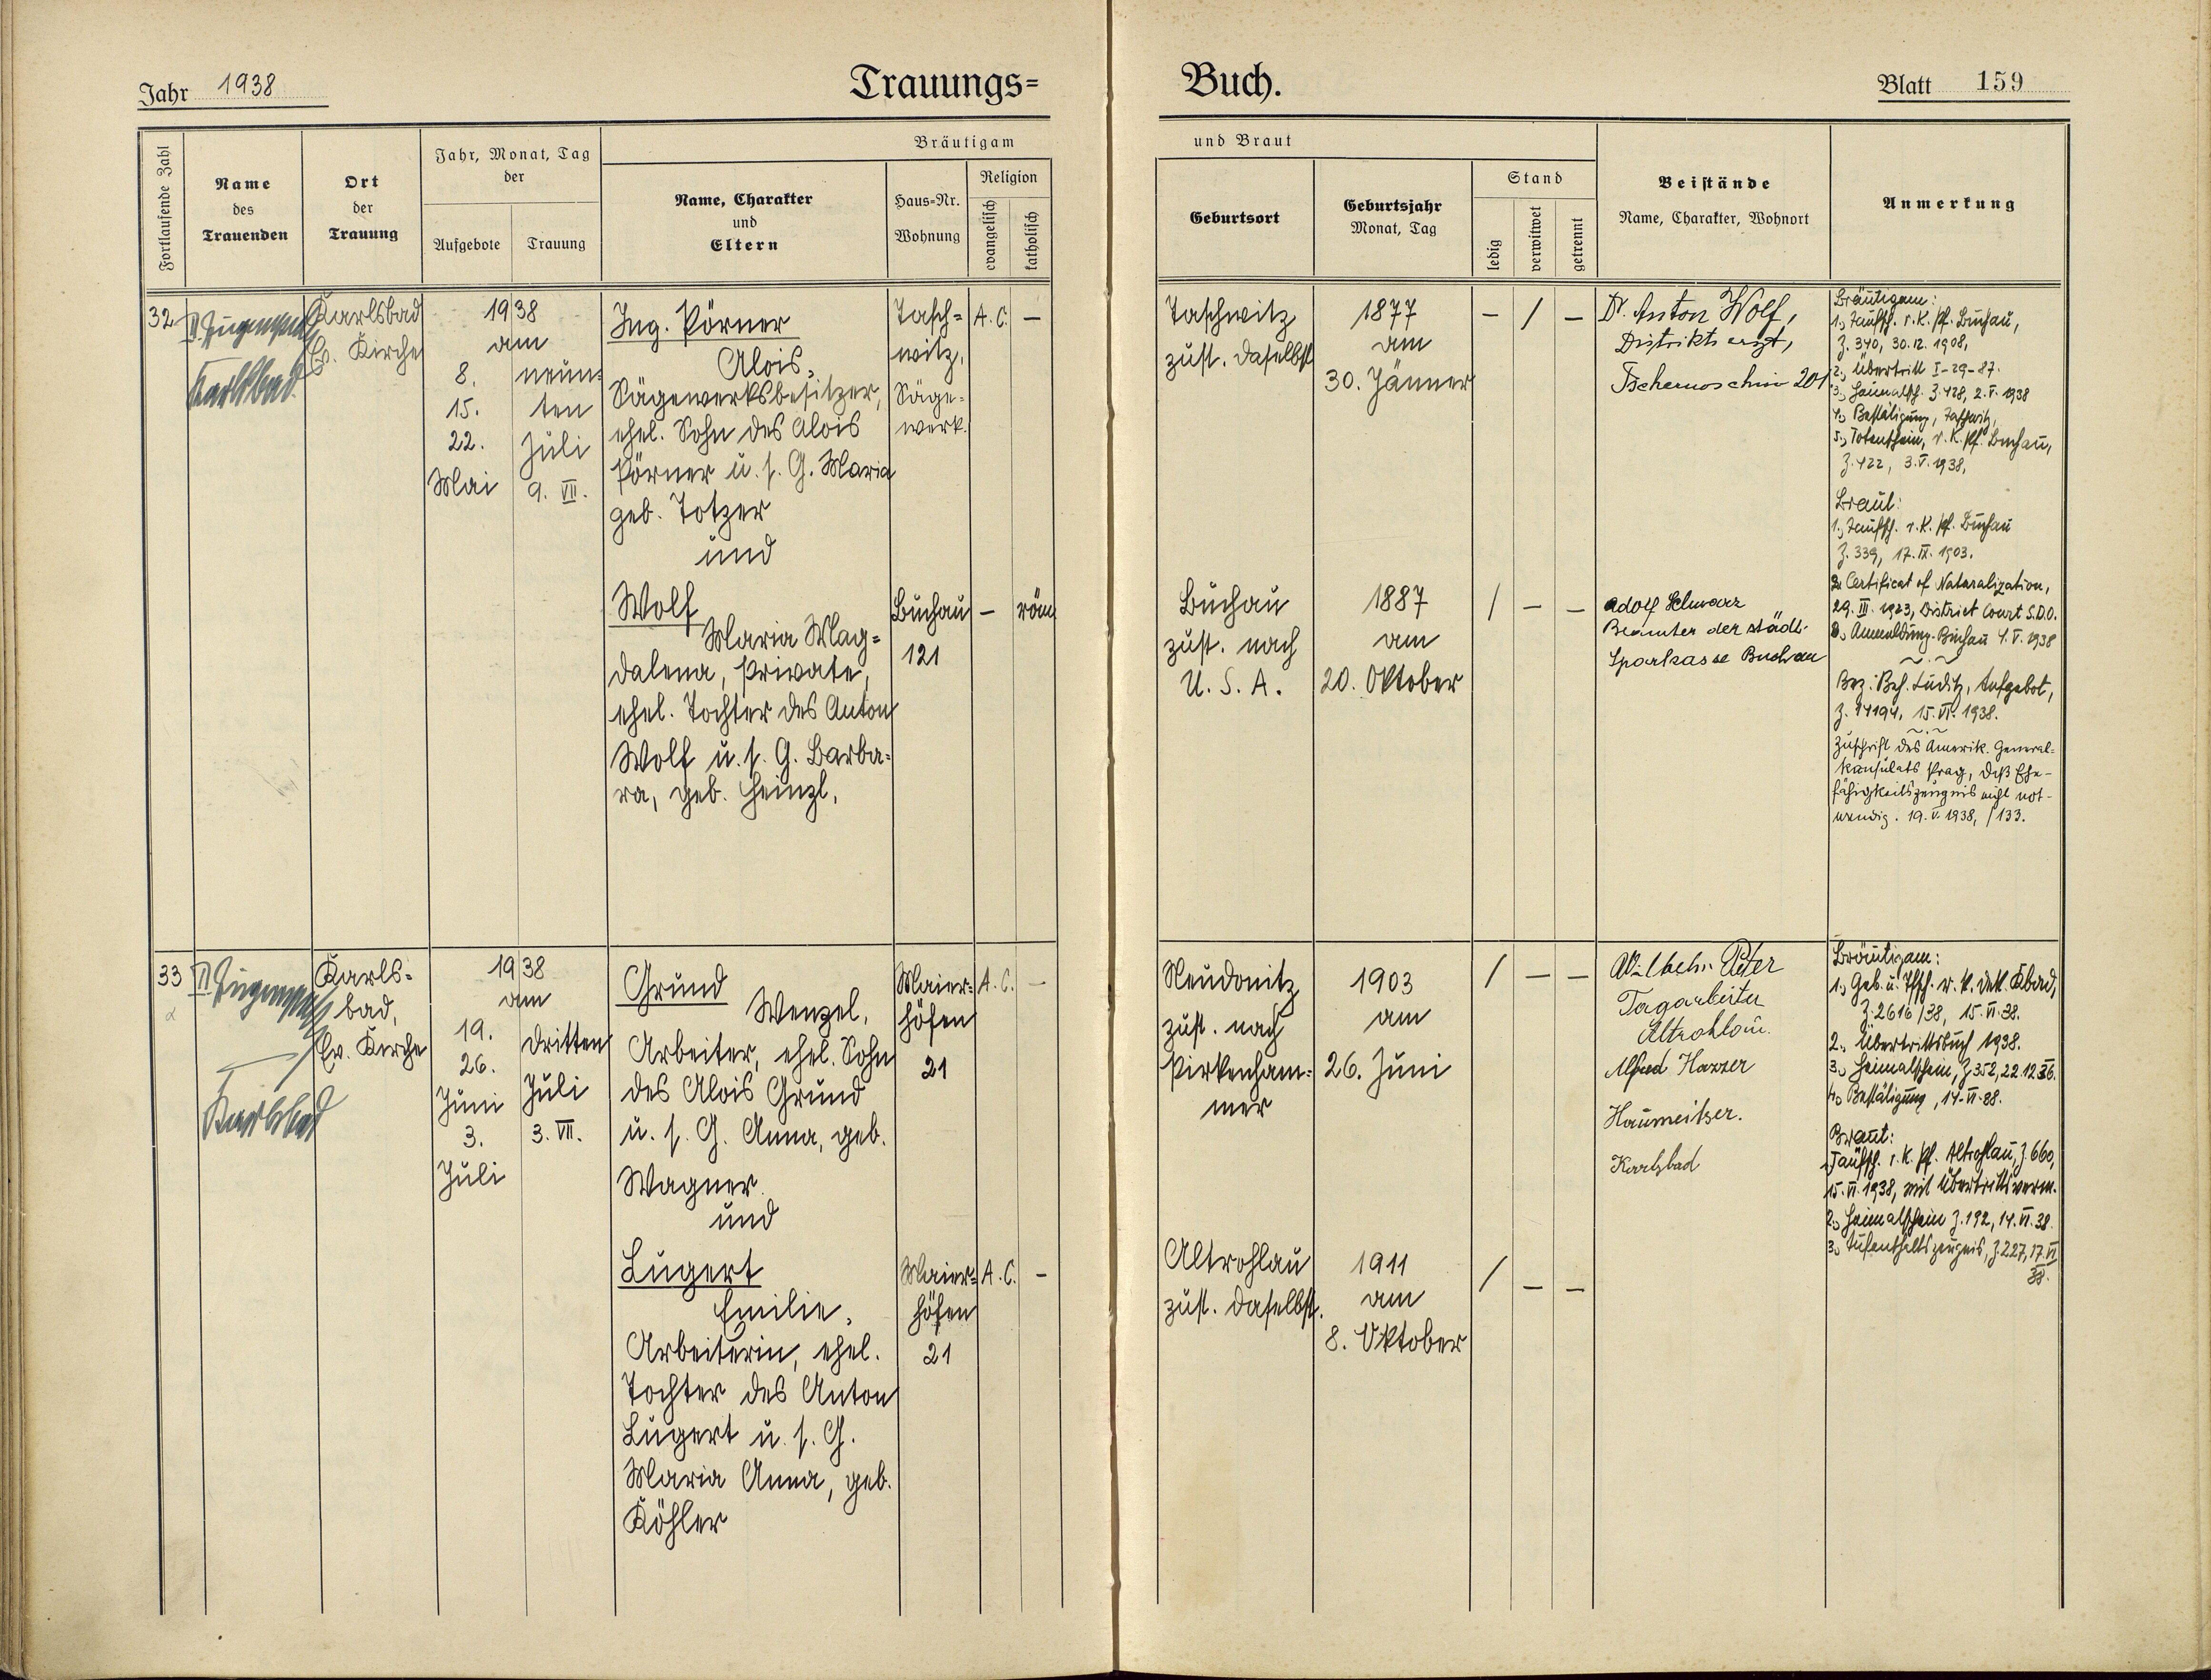 Jahr 1938
Trauungs=
Buch.
Blatt 159
Fortlaufende Zahl
Name
des
Trauenden
Ort
der
Trauung
Jahr, Monat, Tag
der
Aufgebote
Trauung
Bräutigam
Name, Charakter
und
Eltern
Haus=Nr.
Wohnung
Religion
evangelisch
katholisch
und Braut
Geburtsort
Geburtsjahr
Monat, Tag
Stand
ledig
verwitwet
getrennt
Beistände
Name, Charakter, Wohnort
Anmerkung
32
Karlsbad
Karlsbad
Ev. Kirche
1938
am
8.
15.
22.
Mai
neun=
ten
Juli
9. VII.
Ing. Pörner
Alois,
Sägewerksbesitzer,
ehel. Sohn des Alois
Pörner u. s. G. Maria
geb. Totzer
und
Wolf
Maria Mag=
dalena, Private,
ehel. Tochter des Anton
Wolf u. s. G. Barba=
ra, geb. Heinzl,
Tasch=
witz,
Säge=
werk.
A. C.
–
Buchau
121
–
röm
Taschwitz
zust. daselbst
1877
am
30. Jänner
– / –
Buchau
zust. nach
U. S. A.
1887
am
20. Oktober
/ – –
Dr. Anton Wolf,
Distriktsarzt,
Tschernoschin 201.
Adolf Schwarz
Beamter der städt.
Sparkasse Buchau
Bräutigam:
1., Taufsch. r. K. Pf. Buchau,
Z. 340, 30.12. 1908,
2., Übertritt I-29-87.
3., Heimatsch. Z. 428, 2. V. 1938
4., Bestätigung, Taschwitz,
5., Totenschein, r. K. Pf. Buchau,
Z. 422, 3. V. 1938,
Braut:
1., Taufsch. r. K. Pf. Buchau
Z. 339, 17. IX. 1903.
2. Certificat of Naturalization,
29. III. 1923, District Court S.D.O.
3., Anmeldung. Buchau 4. V. 1938
Bez. Beh. Luditz, Aufgebot,
Z. 14194, 15. VI. 1938.
Zuschrift des Amerik. General=
konsulats Prag, daß Ehe-
fähigkeitszeugnis nicht not-
wendig. 19. V. 1938, /133.
33
Karlsbad
Karls=
bad,
Ev. Kirche
1938
am
19.
26.
Juni
3.
Juli
dritten
Juli
3. VII.
Grund
Wenzel,
Arbeiter, ehel. Sohn
des Alois Grund
u. s. G. Anna, geb.
Wagner
und
Lugert
Emilie,
Arbeiterin, ehel.
Tochter des Anton
Lugert u. s. G.
Maria Anna, geb.
Köhler
Maier=
höfen
21
A. C.
–
Maier=
höfen
21
A. C.
–
Neudonitz
zust. nach
Pirkenham=
mer
1903
am
26. Juni
/ – –
Altrohlau
zust. daselbst.
1911
am
8. Oktober
/ – –
Wilhelm Peter
Tagarbeiter
Altrohlau.
Alfred
Karlsbad
Bräutigam:
1., Geb. u. Tfsch. r. k. Dek. Kbad,
Z. 2616/38, 15. VI. 38.
2., Übertrittsbuch 1938.
3., Heimatschein, Z. 352, 22.12.36.
4., Bestätigung, 14-VI-38.
Braut:
1., Taufsch. r. K. Pf. Altrohlau, Z. 660,
15. VI. 1938, mit Übertrittsverm.
2., Heimatschein Z. 192, 14. VI. 38.
3., Aufenthaltszeugnis, Z. 227, 17. VI
38.